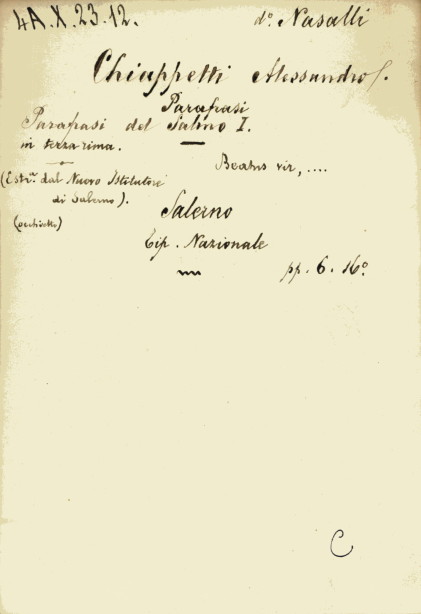 4A.X.23.12.
d°. Nasalli
Chiappetti Alessandro.
Parafrasi
Parafrasi del Salmo I.
in terza rima.
Beatus vir, ....
(Estr.° dal Nuovo Istitutore
di Salerno).
(occhietto)
Salerno
Tip. Nazionale
pp. 6. 16°.
C